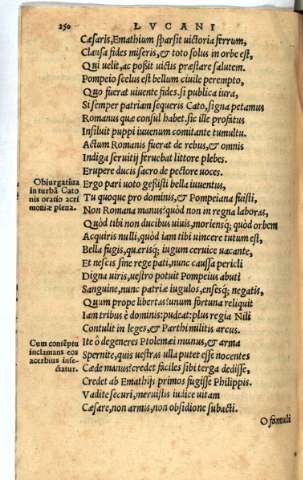 250 LVCANI
Cæsaris, Emathium sparsit uictoria ferrum,
Clausa fides miseris, & toto solus in orbe est,
Qui uelit, ac possit uictis præstare salutem.
Pompeio scelus est bellum ciuile perempto,
Quo fuerat uiuente fides. si publica iura,
Si semper patriam sequeris Cato, signa petamus
Romanus quæ consul habet. sic ille profatus
Insiluit puppi iuuenum comitante tumultu.
Actum Romanis fuerat de rebus, & omnis
Indiga seruitij feruebat littore plebes.
Erupere ducis sacro de pectore uoces.
Obiurgatiua
in turbā Cato
nis oratio acri
moniæ plena.
Ergo pari uoto gessisti bella iuuentus,
Tu quoque pro dominis, & Pompeiana fuisti,
Non Romana manus? quòd non in regna laboras,
Quòd tibi non ducibus uiuis, morienſq; quòd orbem
Acquiris nulli, quòd iam tibi uincere tutum est,
Bella fugis, quærisq; iugum ceruice uacante,
Et nescis sine rege pati, nunc caussa pericli
Digna uiris, uestro potuit Pompeius abuti
Sanguine, nunc patriæ iugulos, enseſq; negatis,
Quum prope libertas? unum fortuna reliquit
Iam tribus è dominis: pudeat: plus regia Nili
Contulit in leges, & Parthi militis arcus.
Cum contēptu
inclamans eos
acerbius inse-
ctatur.
Ite ô degeneres Ptolemæi munus, & arma
Spernite, quis uestras ulla putet esse nocentes
Cæde manus? credet faciles sibi terga dedisse,
Credet ab Emathijs primos fugisse Philippis.
Vadite securi, meruistis iudice uitam
Cæsare, non armis, non obsidione subacti.
O famuli